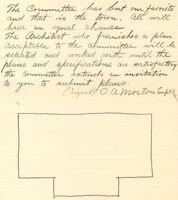 The Committee has but one favorite
and that is the town. All will
have an equal chance.
The Architect who furnishes a plan
acceptable to the committee will be
selected and worked with until the
plans and specifications are satisfactory
the committee extends an invitation
to you to submit plans.
(Signed) O A Morton Supt